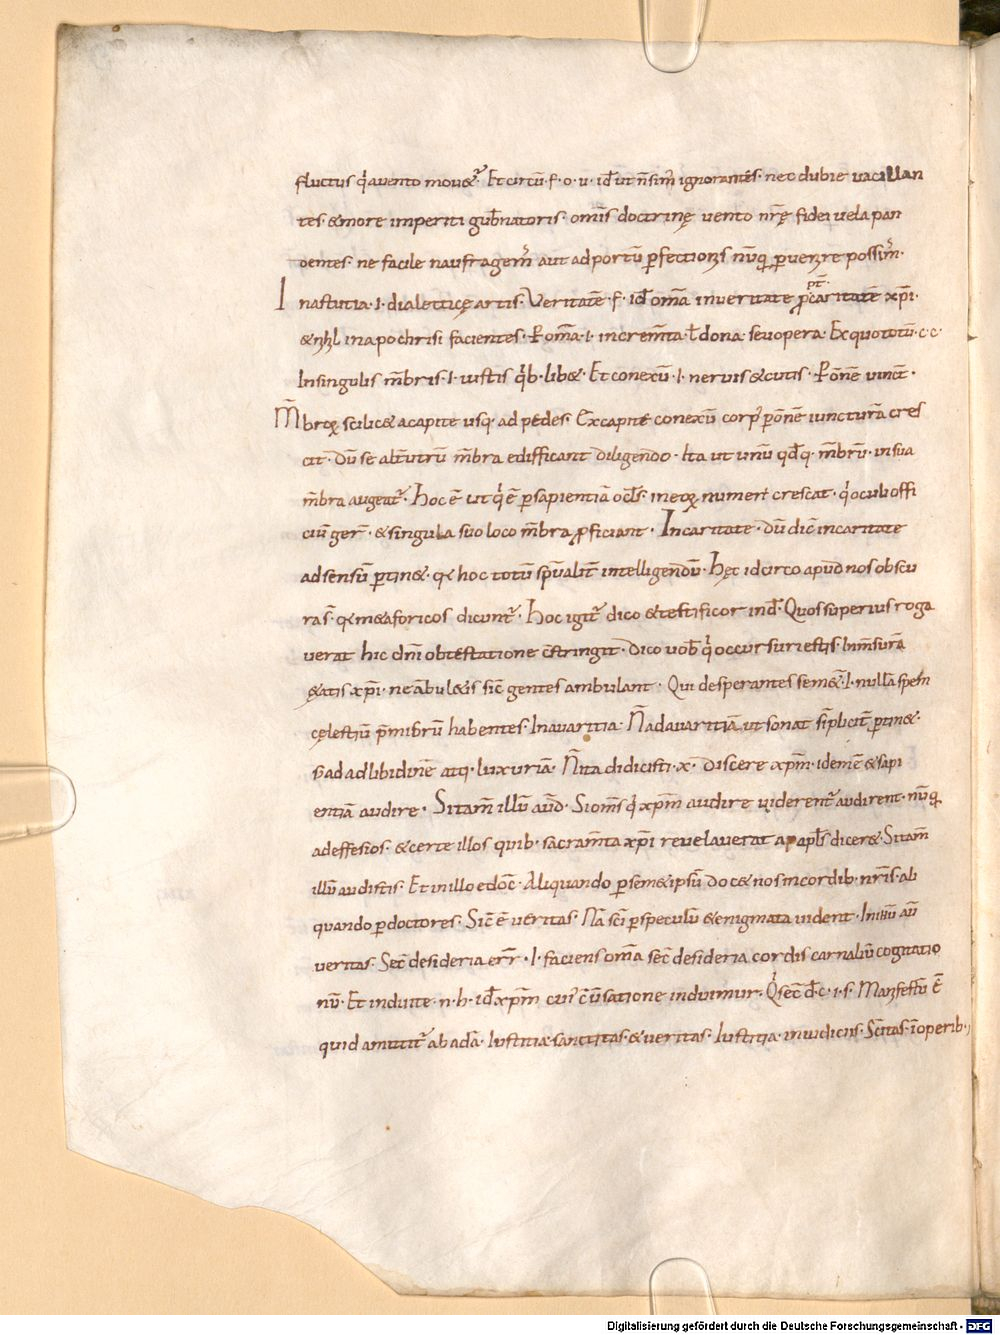 fluctus q̓ a uento mouet᷑. Et circū·f·o·u· id̄ ut n̄ sim̄ ignorantes· nec dubie uacillan
tes· & more imperiti gub̄natoris· om̄is doctrinę uento nr̄ę fidei uela pan
dentes· ne facile naufragem̄ aut ad portū ꝑfectionis nūq ꝑuenire possim̄·
In astutia·i· dialecticę artis· Veritatē·f· id̄ om̄a in ueritate ꝓpt̄ caritatē xp̄i·
& nihil in apochrisi facientes· P om̄a·i· increm̄ta· ł dona seu opera· Ex quo totū·c·c·
In singulis m̄bris·i· iustis q̓b·lib&· Et conexū·i· neruis & cutis· P om̄ē uinct·
M̄broꝝ scilic& a capite usq· ad pedes· Ex capite conexū corp᷒ ꝑ om̄ē iuncturā cres
cit· dū se alt̄utrū m̄bra edifficant diligendo· Ita ut unū qd̄q· m̄brū· in sua
m̄bra augeat᷑· Hoc ē ut q̓ ē ꝑ sapientiā ocl̄s· in eoꝝ numeri crescat· q̓ oculi offi
ciū ger̄· & singula suo loco m̄bra ꝓficiant· In caritate· dū dic̄ in caritate
ad sensū ꝑtin&· qꝛ hoc totū sp̄ualit̄ intelligendū· Hęc idcirco apud nos obscu
ras̄· qꝛ m&aforicos dicunt᷑· Hoc igit᷑ dico & testificor in d̄· Quos superius roga
uerat hic dn̄i obtestatione c̄stringit· Dico uob̄ q̓ occursuri estis· In m̄surā
&atis xp̄i· ne ābul&is sic̄ gentes ambulant· Qui desperantes sem&·i· nullā spem
cęlestiū p̄miorū habentes· In auaritia· N̄ ad auaritiā ut sonat sīplicit̄ ꝑtin&·
s ad ad libidinē atq· luxuriā· N̄ ita didicisti·x̄· Discere xp̄m· idem ē & sapi
entiā audire· Si tam̄ illū aud̄· Si om̄s q̓ xp̄m audire uiderent᷑ audirent· nūq
ad effesios· & certe illos quib· sacram̄ta xp̄i reuelauerat a apl̄s dicere· Si tam̄
illū audistis· Et in illo edoc̄· Aliquando ꝑ sem&ipsū doc& nos in cordib· nr̄is· ali
quando ꝑ doctores· Sic̄ ē ueritas· Nā sc̄i ꝑ speculū & enigmata uident· In illū aū
ueritas· Sec̄ desideria err̄·i· faciens om̄a sec̄ desideria cordis carnaliū cogitatio
nū· Et induite·n·h· id̄ xp̄m cui᷒ c̄uersatione induimur· Q̓ sec̄ d̄·c·i·s· Manifestū ē
quid amittit᷑ ab adā· Iustitia· sanctitas· & ueritas· Iustitia· in iudiciis· Sc̄itas· ī operib·
Digitalisierung gefördert durch die Deutsche Forschungsgemeinschaft - DFG